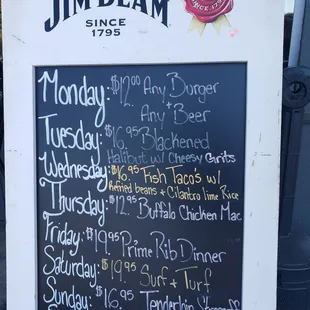 JIM BEAM
SINCE
1795
Monday: $12.00 Any Burger
+
Any Beer
Tuesday: $16.95 Blackened
Halibut w/ Cheesy Grits
Wednesday: $16.95 Fish Tacos w/
Refried beans + Cilantro lime Rice
Thursday: $12.95 Buffalo Chicken Mac
Friday: $19.95 Prime Rib Dinner
Saturday: $19.95 Surf + Turf
Sunday: $16.95 Tenderloin